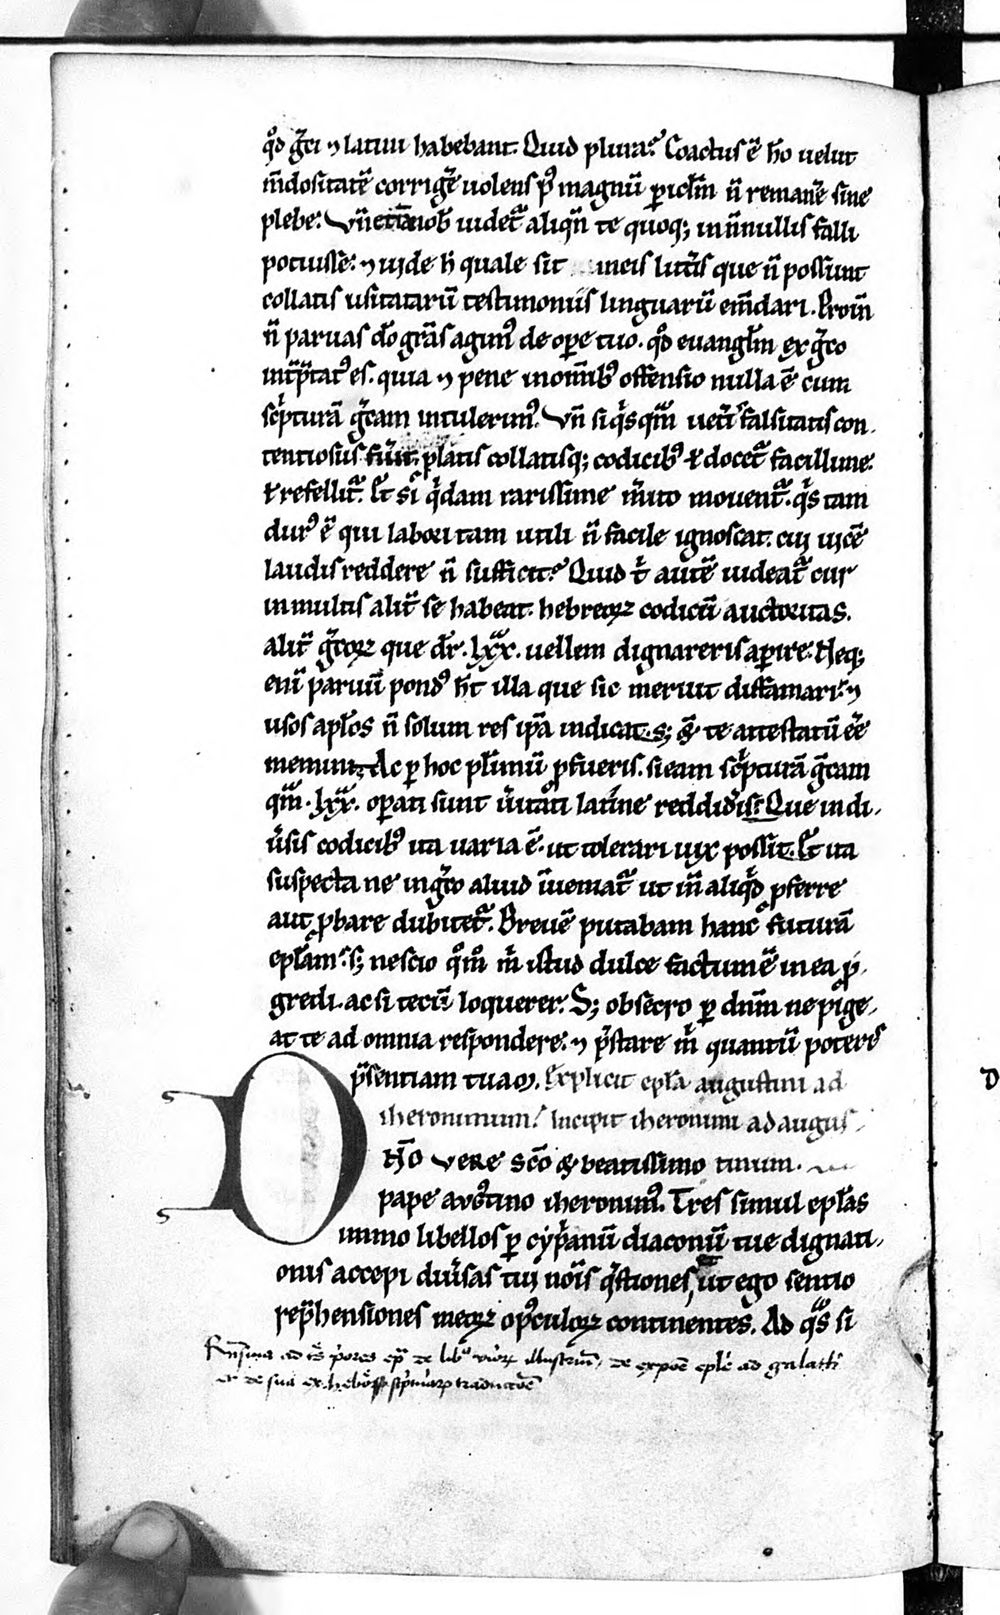 qd̾ gͣci ⁊ latini habebant. Quid plura? Coactus ē hō uelut
m̄dositatē corrigͤe uolens p̾ magnū ꝑicl̄m n̄ remanͤe sine
plebe. Vn̄ etiā nob̄ uidetᷣ aliqn̄ te quoq; in n̄nullis falli
potuisse. ⁊ uide h̄ quale sit in eis litt̄is que n̄ possunt
collatis usitatarū testimoniis linguarū em̄dari. Proin̄
n̄ paruas dō grās agimꝰ de oꝑe tuo. qd̾ euangl̄m ex gͣco
int̾p̄tatꝰ es. quia ⁊ pene in om̄ibꝰ offensio nulla ē cum
sc̾pturā gͣcam intulerimꝰ. Vn̄ si qͥsqͣm uet̾i falsitatis con
tentiosus fuit. ꝓlatis collatisq; codicibꝰ ł docetᷣ facillime.
ł refellitᷣ. Et si qͥdam rarissime m̾ito mouentᷣ. qͥs tam
durꝰ ē qui labori tam utili n̄ facile ignoscat. cui uicē
laudis reddere n̄ sufficit? Quid t̾ autē uideatᷣ cur
in multis alit̾ se habeat. hebreoꝝ codicū auctoritas.
alit̾ gͣcoꝝ que dr̄. lxx. uellem dignareris aꝑire. Neq;
enī paruū pondꝰ h̄t illa que sic meruit diffamari. ⁊
usos apl̄os n̄ solum res ip̄a indicat. s; & te attestatū eē
memini. Ac ꝑ hoc pl̾imū ꝓfueris. si eam sc̾pturā gͣcam
qͣm. lxx. oꝑati sunt u̾itati latine reddid̾is. Que in di
u̾sis codicibꝰ ita uaria ē. ut tolerari uix possit. Et ita
suspecta ne in gͣco aliud īueniatᷣ ut in̄ aliqd̾ ꝓferre
aut ꝓbare dubitetᷣ. Breuē putabam hanc futurā
epl̄am. s; nescio qͦmͦ m̾ istud dulce factum ē in ea ꝓ
gredi. ac si tecū loquerer. S; obsecro ꝑ dn̄m ne pige
at te ad omnia respondere. ⁊ p̄stare m̾ quantū poteris
p̄sentiam tuaꝫ. Explicit epl̄a augustini ad
iheronimum. Incipit iheronimi ad augus
Dn̄o vere sc̄o & beatissimo tinum.
pape avgͦtino iheronimꝰ. Tres simul epl̄as
immo libellos ꝑ cyp̾anū diaconū tue dignati
onis accepi diu̾sas tui nōis qͣstiones, ut ego sentio
rep̄hensiones meoꝝ opꝰculoꝝ continentes. Ad qͣs si